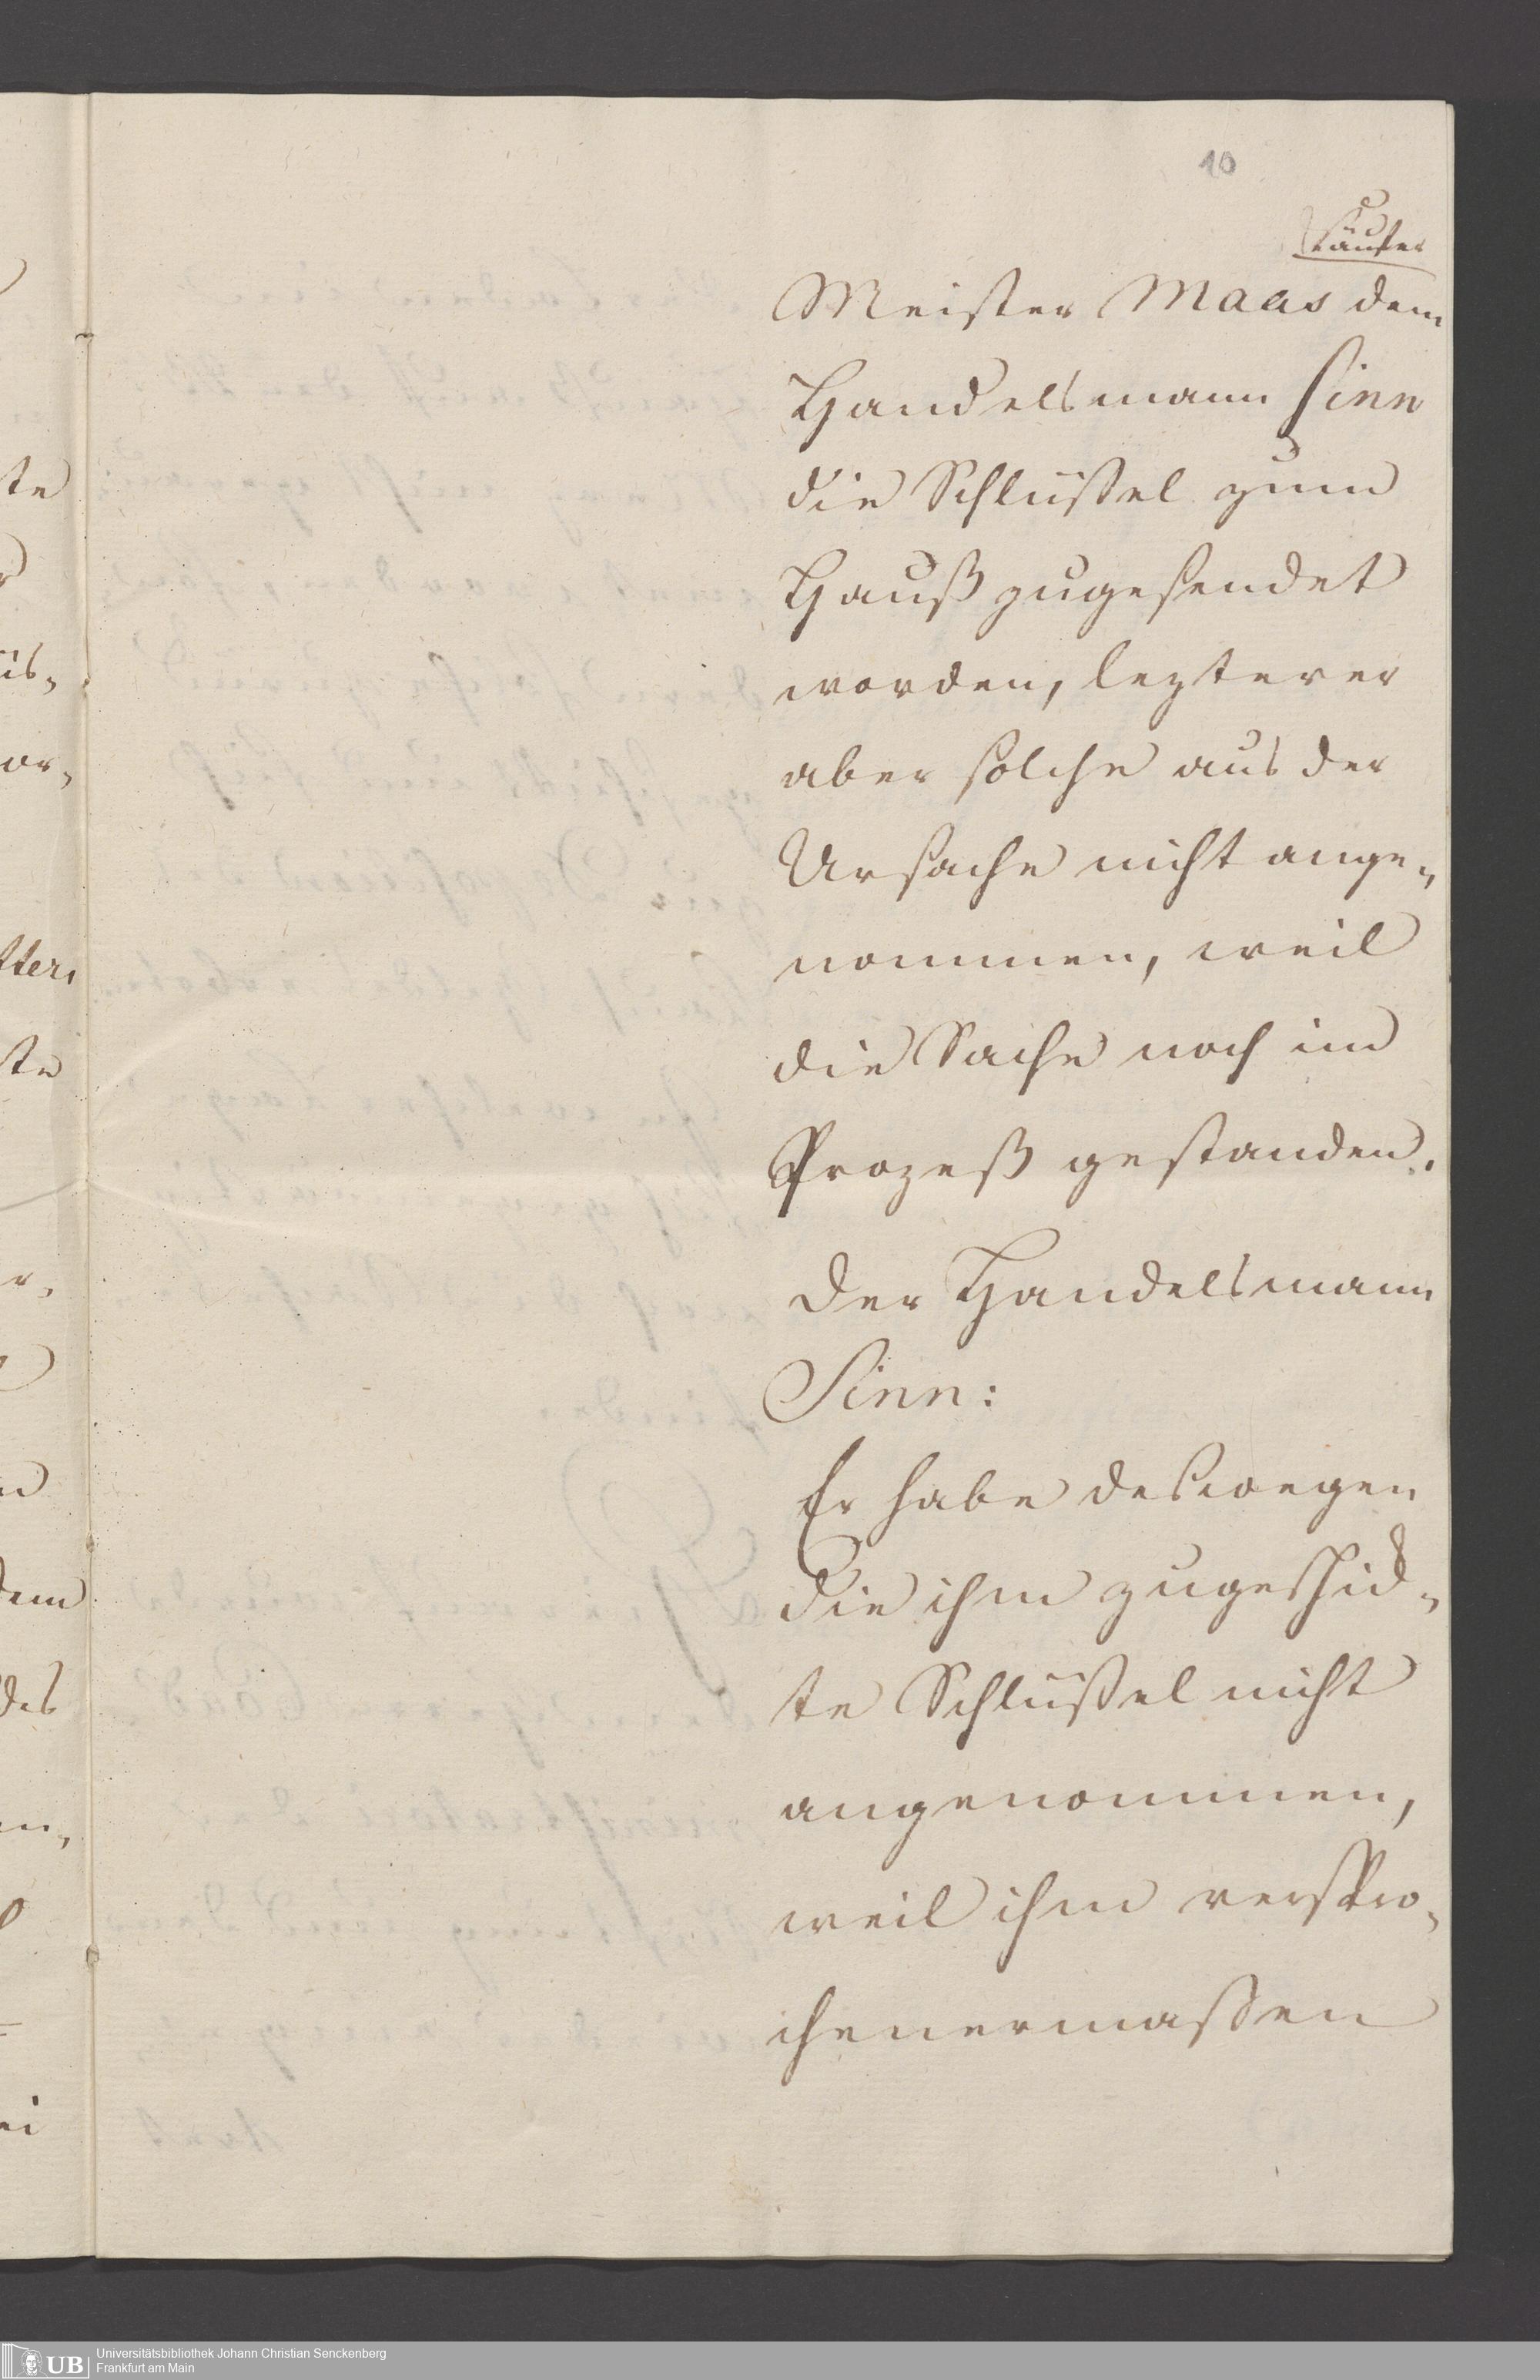 10
Käufer
Meister Maas dem
Handelsmann Sinn
die Schlüßel zum
Hauß zugesendet
worden, lezterer
aber solche aus der
Ursache nicht ange„
nommen, weil
die Sache noch im
Prozeß gestanden.
Der Handelsmann
Sinn:
Er habe deswegen
die ihm zugeschick„
te Schlüßel nicht
angenommen,
weil ihm verspro„
chenermassen
UB
Universitätsbibliothek Johann Christian Senckenberg
Frankfurt am Main